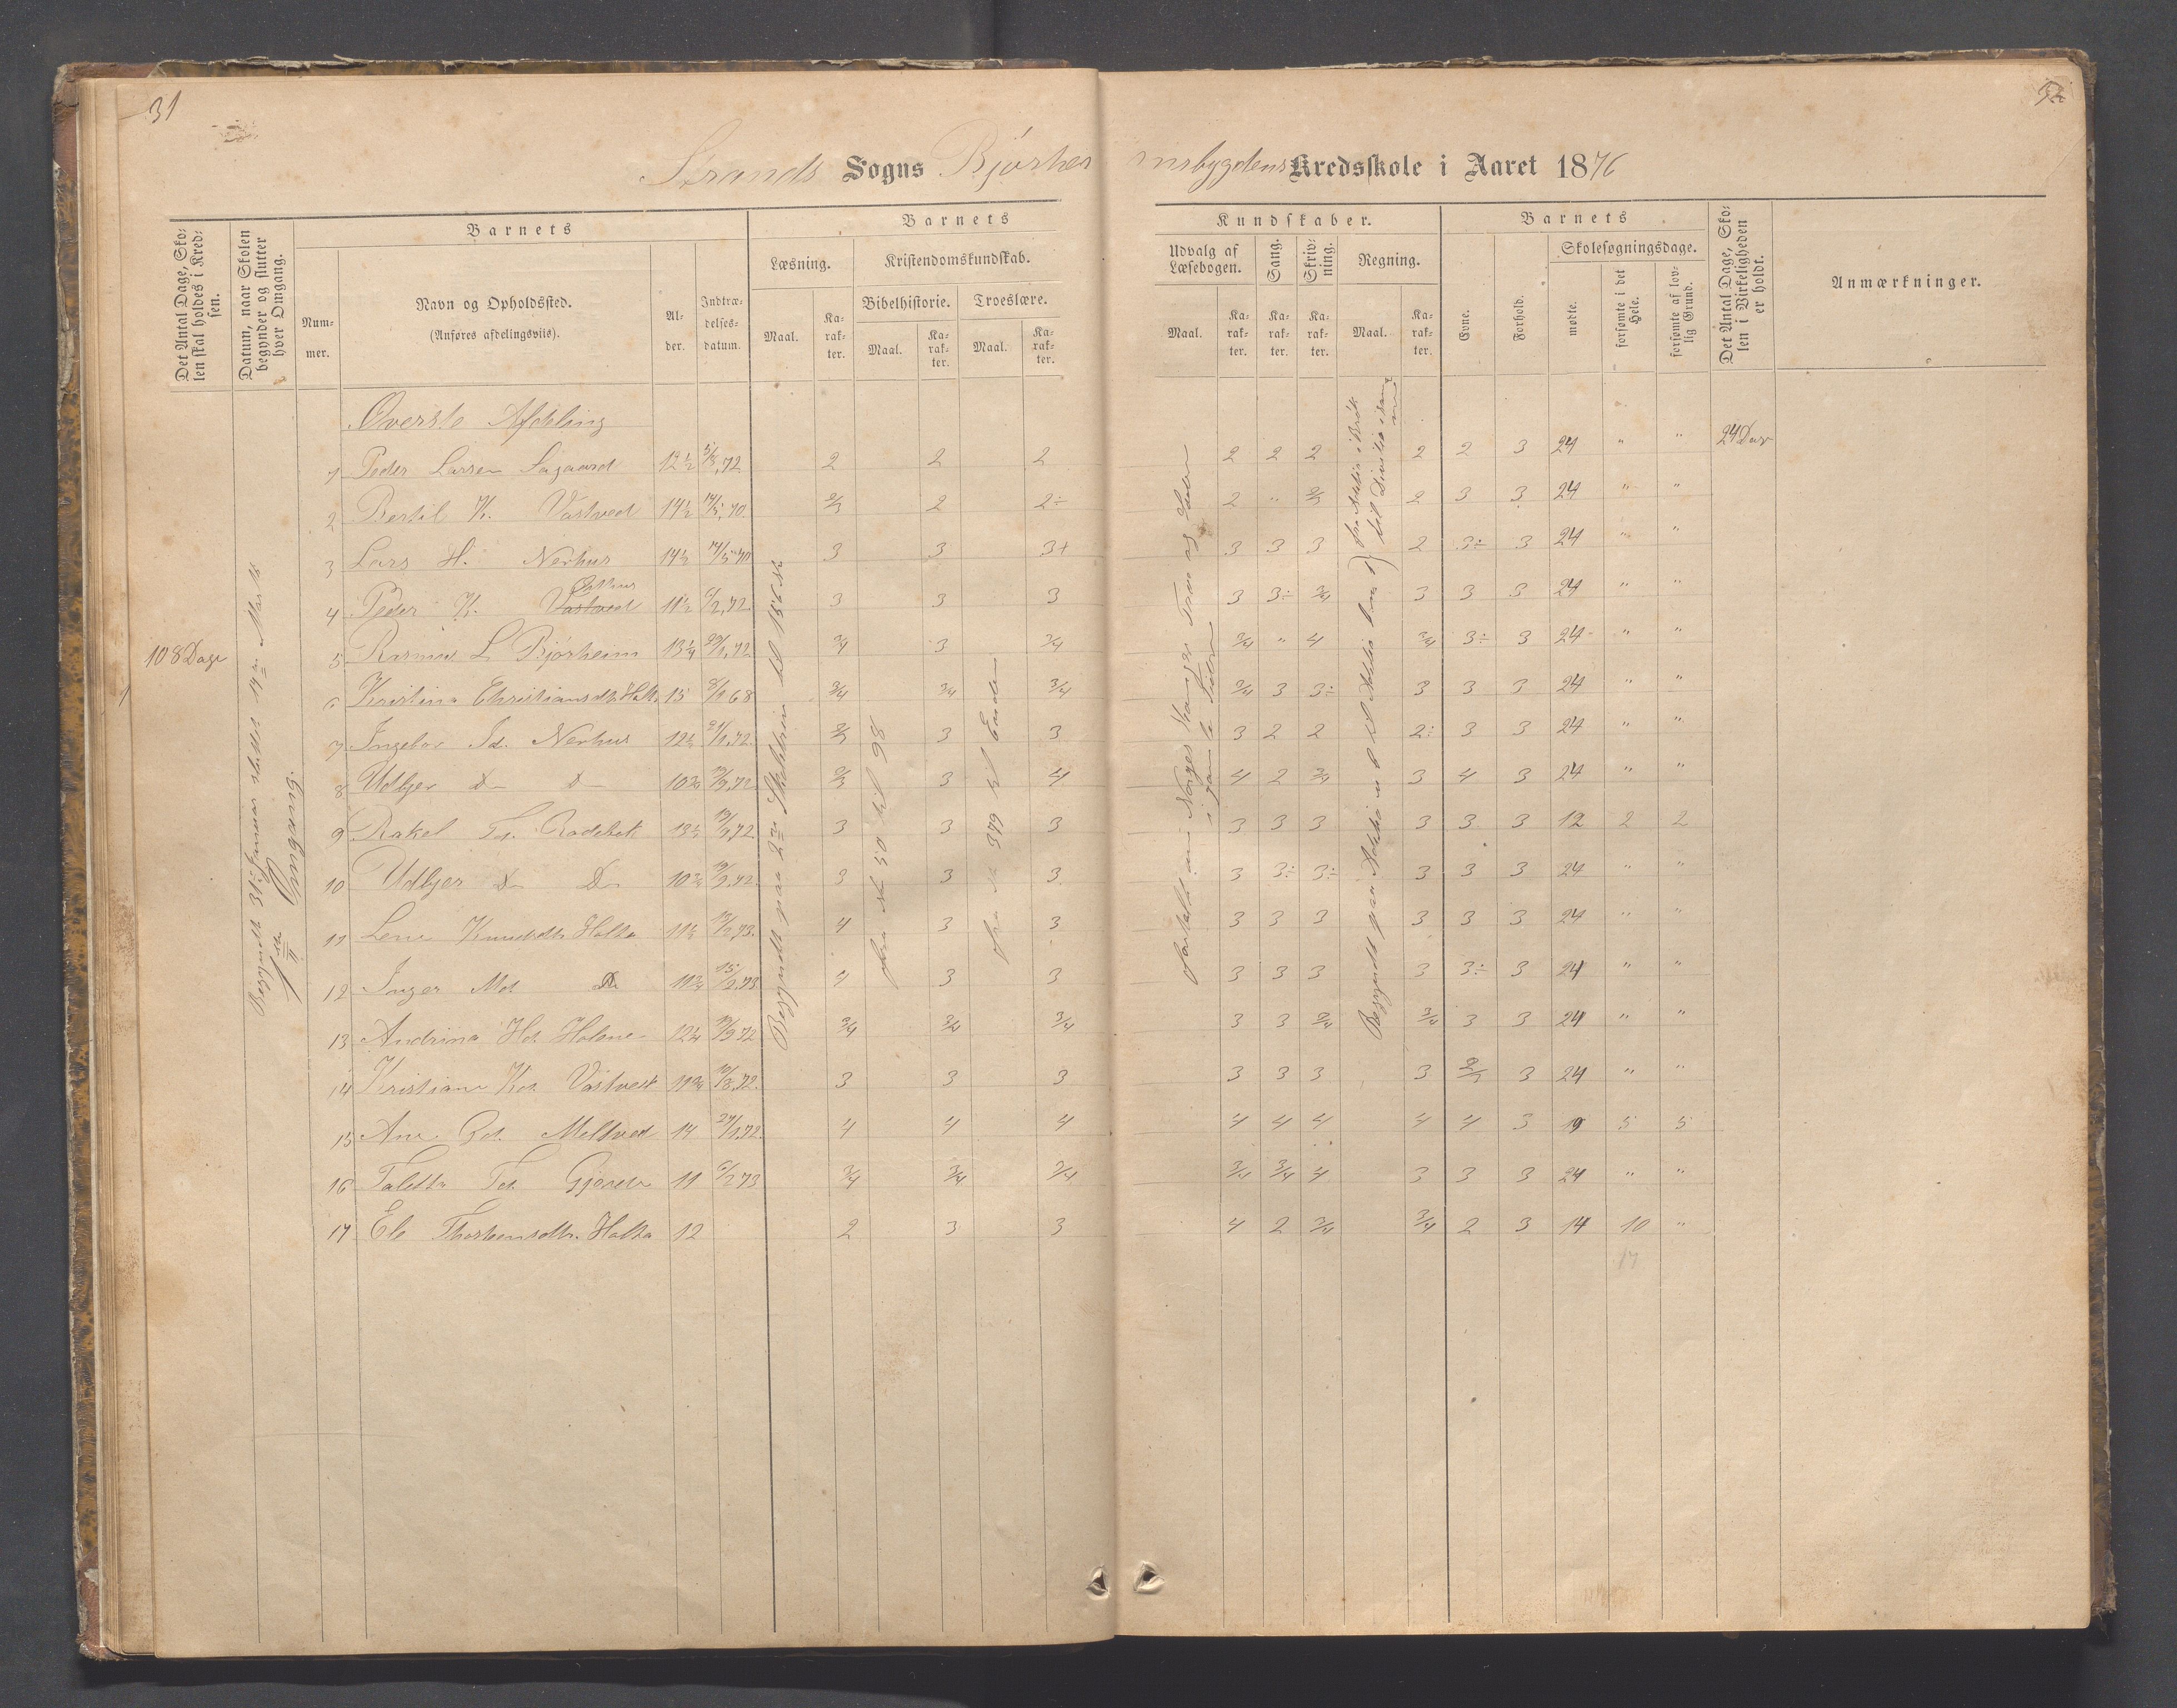 31
32
Strands Sogns Bjørheimsbygdens Kredsskole i Aaret 1876
Det Antal Dage, Skolen skal holdes i Kredsen.
Datum, naar Skolen begynder og slutter hver Omgang.
Barnets
Nummer.
Navn og Opholdssted.
(Anføres afdelingsviis).
Alder.
Indtrædelsesdatum.
Barnets Kundskaber.
Læsning.
Maal.
Karakter.
Kristendomskundskab.
Bibelhistorie.
Maal.
Karakter.
Troeslære.
Maal.
Karakter.
Udvalg af Læsebogen.
Maal.
Karakter.
Sang.
Karakter.
Skrivning.
Karakter.
Regning.
Maal.
Karakter.
Barnets
Evne.
Forhold.
Skolesøgningsdage.
mødte.
forsømte i det Hele.
forsømte af lovlig Grund.
Det Antal Dage, Skolen i Virkeligheden er holdt.
Anmærkninger.
108 Dage
Begyndt 31te Januar sluttet 19de Marts
1ste Omgang.
Øverste Afdeling
24 Dage
1 Peder Larsen 12½ 5/8,72 2 2 2 2 2 2 2 2 3 24 " "
2 Bertil K. Vastved 14½ 14/5,70 2/3 2 2÷ 2 " 2/3 2 3 3 24 " "
3 Lars H. Nerhus 14½ 14/5 70 3 3 3+ 3 3 3 2 3÷ 3 24 " "
4 Peder K. Vastved 11½ 6/2,72 3 3 3 3 3÷ 3/4 3 3 3 24 " "
5 Rasmus L Bjørheim 13¼ 29/1,72 3/4 3 3/4 3/4 " 4 3/4 3÷ 3 24 " "
6 Kristina Christiansdtr Holta 15 8/1 68 3/4 3/4 3/4 3/4 3 3÷ 3 3 3 24 " "
7 Ingebor Nerhus 12½ 21/1,72 2/3 3 3 3 2 2 2÷ 3 3 24 " "
8 Udbjer D D 10¾ 2/3 3 4 4 2 3/4 3 4 3 24 " "
9 Rakel Td. Rødebek 13½ 3 3 3 3 3 3 3 3 3 12 2 2
10 Udbjer D D 10¾ 3 3 3 3 3÷ 3÷ 3 3 3 24 " "
11 Lene Knudsdtr Holta 11½ 4 3 3 3 3 3 3 3 3 24 " "
12 Inger Md. D 11¾ 15/2,73 4 3 3 3 3 3 3 3÷ 3 24 " "
13 Andrina Hd. Holme 12¼ 3/4 3/4 3/4 3 3 3/4 3/4 3 3 24 " "
14 Kristiane Kd. Vastvedt 11¾ 3 3 3 3 3 3 3 2/3 3 24 " "
15 Ane Gd. Meltved 14 27/1,72 4 4 4 4 4 4 4 4 3 19 5 5
16 Taletta Td. 11 6/2 73 3/4 3/4 3/4 3/4 3/4 4 3 3 3 24 " "
17 Eli Thorstensdtr. Holta 12 2 3 3 4 2 3/4 3/4 2 3 14 10 "
17
Begyndt paa 2den til 156 sk
fra sk 50 til 98
fra sk 379 til Enden
fortalt om Norges Konger
i gamle Tider
Begyndt paa Addition
fra Addition i Brøk
til Division i samme